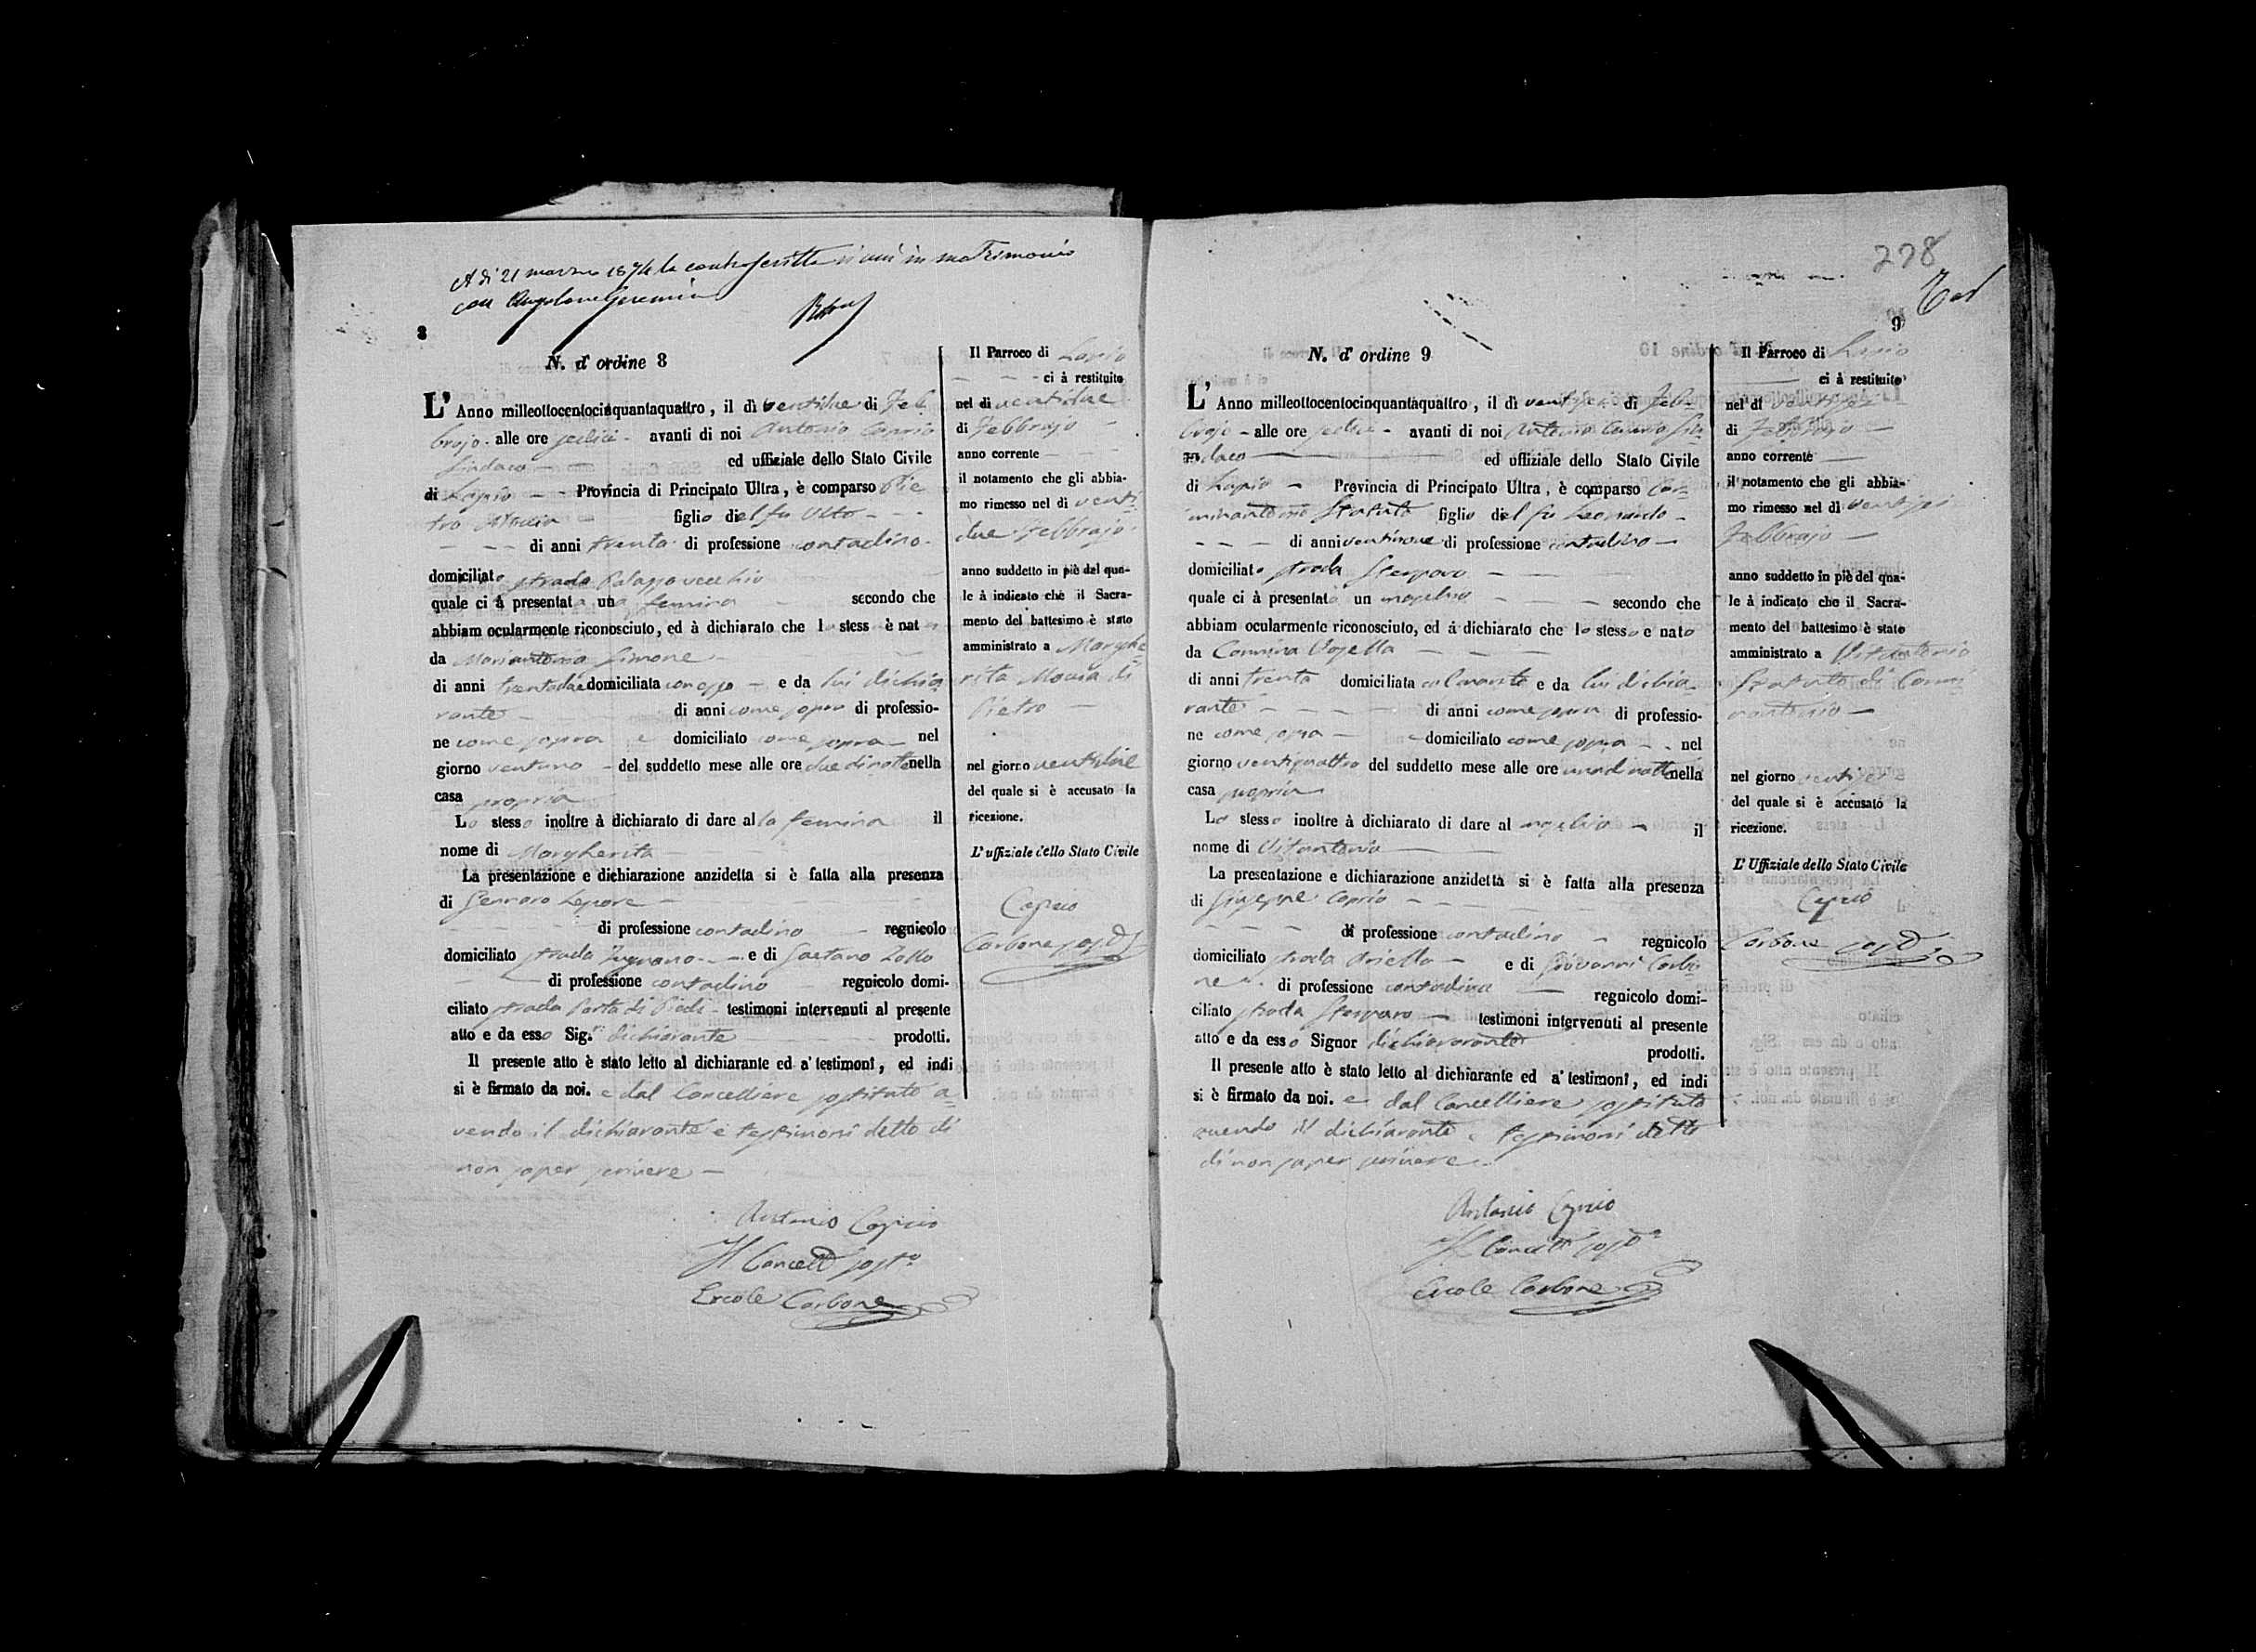 A dì 21 marzo 1874 la controscritta si unì in matrimonio
con Angelone Geremia
8
N. d' ordine 8
L' Anno milleottocentocinquantaquattro, il dì ventidue di Feb
brajo alle ore sedici avanti di noi Antonio Caprio
Sindaco ed uffiziale dello Stato Civile
di Lapio Provincia di Principato Ultra, è comparso Pie
tro figlio del fu Vito
di anni trenta di professione contadino
domiciliato strada Palazzo vecchio
quale ci à presentata una femina secondo che
abbiam ocularmente riconosciuto, ed à dichiarato che l stess è nat
da Mariantonia Simone
di anni trentadue domiciliata con esso e da lui dichia
rante di anni come sopra di professio-
ne come sopra e domiciliato come sopra nel
giorno ventuno del suddetto mese alle ore due di notte nella
casa propria
Lo stesso inoltre à dichiarato di dare alla femina il
nome di Margherita
La presentazione e dichiarazione anzidetta si è fatta alla presenza
di Gennaro Lepore
di professione contadino regnicolo
domiciliato strada e di Gaetano Zollo
di professione contadino regnicolo domi-
ciliato strada Porta di Piedi testimoni intervenuti al presente
atto e da esso Sig.r dichiarante prodotti.
Il presente atto è stato letto al dichiarante ed a' testimonî, ed indi
si è firmato da noi. e dal Cancelliere sostituto a-
vendo il dichiarante e testimoni detto di
non saper scrivere
Antonio Caprio
Il Cancell sost.o
Ercole Carbone
Il Parroco di Lapio
ci à restituito
nel dì ventidue
di Febbrajo
anno corrente
il notamento che gli abbia-
mo rimesso nel dì venti
due Febbrajo
anno suddetto in piè del qua-
le à indicato che il Sacra-
mento del battesimo è stato
amministrato a Marghe
rita di
Pietro
nel giorno ventidue
del quale si è accusato la
ricezione.
L' uffiziale dello Stato Civile
Caprio
Carbone sost
228
9
N. d' ordine 9
L' Anno milleottocentocinquantaquattro, il dì ventisei di Feb-
brajo alle ore sedici avanti di noi Antonio Caprio Sin
daco ed uffiziale dello Stato Civile
di Lapio Provincia di Principato Ultra, è comparso Car-
minantonio Statuto figlio del fu Leonardo
di anni ventinove di professione contadino
domiciliato strada
quale ci à presentato un maschio secondo che
abbiam ocularmente riconosciuto, ed à dichiarato che lo stesso e nato
da Carmina
di anni trenta domiciliata col marito e da lui dichia-
rante di anni come sopra di professio-
ne come sopra e domiciliato come sopra nel
giorno ventiquattro del suddetto mese alle ore una di notte nella
casa propria
Lo stesso inoltre à dichiarato di dare al maschio il
nome di Vitantonio
La presentazione e dichiarazione anzidetta si è fatta alla presenza
di Giuseppe Caprio
di professione contadino regnicolo
domiciliato strada Ariella e di Giovanni Carbo
ne di professione contadino regnicolo domi-
ciliato strada testimoni intervenuti al presente
atto e da esso Signor dichiarante prodotti.
Il presente atto è stato letto al dichiarante ed a' testimonî, ed indi
si è firmato da noi. e dal Cancelliere sostituto
avendo il dichiarante e testimoni detto
di non saper scrivere
Antonio Caprio
Il Cancell sost
Ercole Carbone
Il Parroco di Lapio
ci à restituito
nel dì ventisei
di Febbrajo
anno corrente
il notamento che gli abbia-
mo rimesso nel dì ventisei
Febbrajo
anno suddetto in piè del qua-
le à indicato che il Sacra-
mento del battesimo è stato
amministrato a Vitantonio
Statuto di Carmi
nantonio
nel giorno ventisei
del quale si è accusato la
ricezione.
L' Uffiziale dello Stato Civile
Caprio
Carbone sost